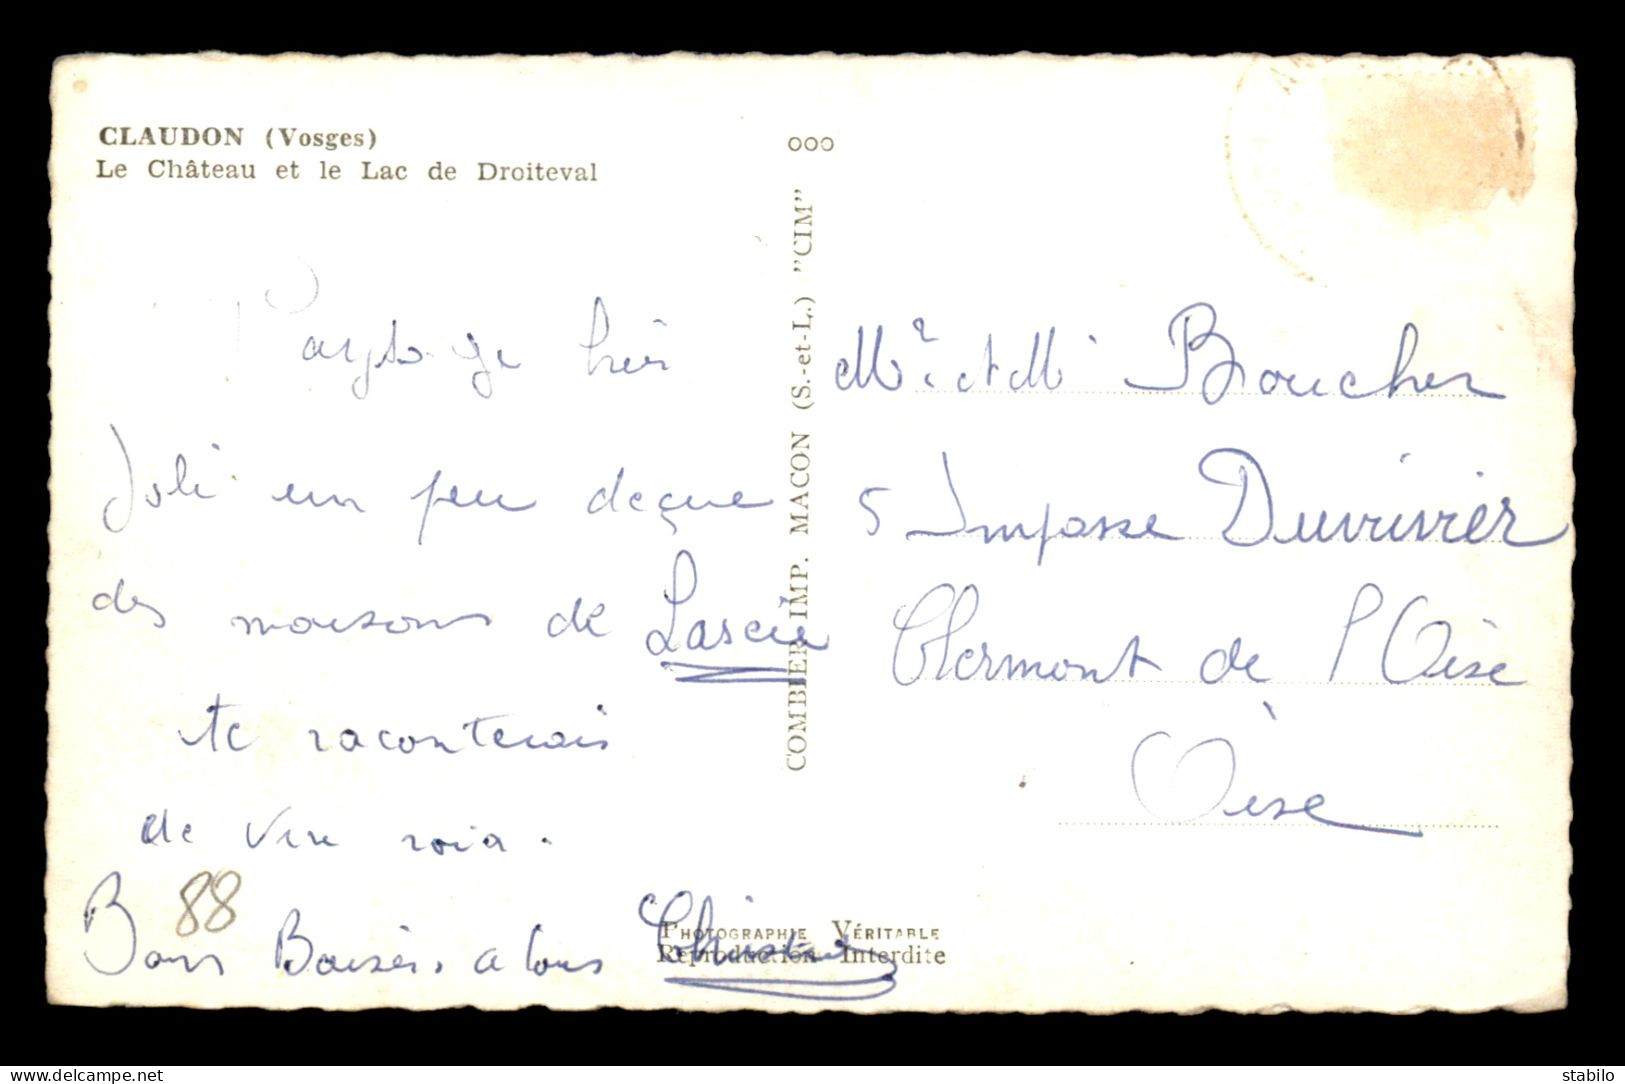 CLAUDON (Vosges)
Le Château et le Lac de Droiteval
hier
Joli un peu deçue
des maisons de
te raconterais
de vive
Bons Baisers a tous Christine
88
ooo
COMBIER IMP. MACON (S.-et-L.) "CIM"
PHOTOGRAPHIE VÉRITABLE
Reproduction Interdite
Mr et M Boucher
5 Impasse Duvivier
Clermont de l'Oise
Oise
delcampe.net
stabilo